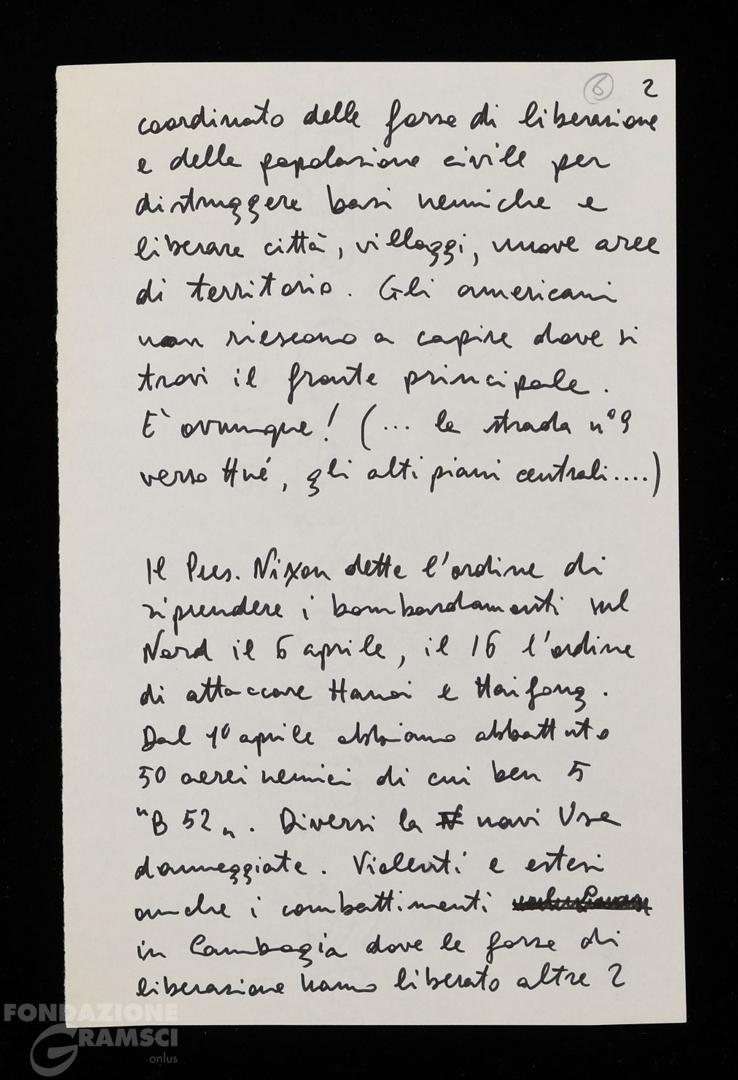 6 2
coordinato delle forze di liberazione
e della popolazione civile per
distruggere basi nemiche e
liberare città, villaggi, nuove aree
di territorio. Gli americani
non riescono a capire dove si
trovi il fronte principale.
E' ovunque! (... la strada n° 9
verso Hué, gli alti piani centrali....)
Il Pres. Nixon dette l'ordine di
riprendere i bombardamenti sul
Nord il 6 aprile, il 16 l'ordine
di attaccare Hanoi e Haifong.
Dal 1° aprile abbiamo abbattuto
50 aerei nemici di cui ben 5
"B 52". Diversi la navi Usa
danneggiate. Violenti e estesi
anche i combattimenti
in Cambogia dove le forze di
liberazione hanno liberato altre 2
FONDAZIONE
GRAMSCI
onlus